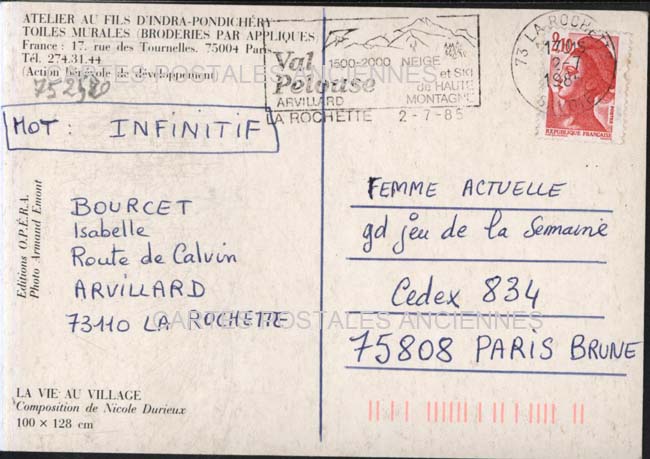 ATELIER AU FILS D'INDRA-PONDICHÉRY
TOILES MURALES (BRODERIES PAR APPLIQUES)
France : 17, rue des Tournelles. 75004 Paris
Tél. 274.31.44
(Action bénévole de développement)
MOT : INFINITIF
BOURCET
Isabelle
Route de Calvin
ARVILLARD
73110 LA ROCHETTE
Editions O.P.É.R.A.
Photo Armand Emont
LA VIE AU VILLAGE
Composition de Nicole Durieux
100 × 128 cm
Val
Pelouse
1500-2000 NEIGE
et SKI
de HAUTE
MONTAGNE
ARVILLARD
LA ROCHETTE 2-7-85
73 LA ROCHETTE
2-7
SAVOIE
2,10
POSTES
REPUBLIQUE FRANÇAISE
FEMME ACTUELLE
gd jeu de la Semaine
Cedex 834
75808 PARIS BRUNE
CARTES POSTALES ANCIENNES
CARTES POSTALES ANCIENNES